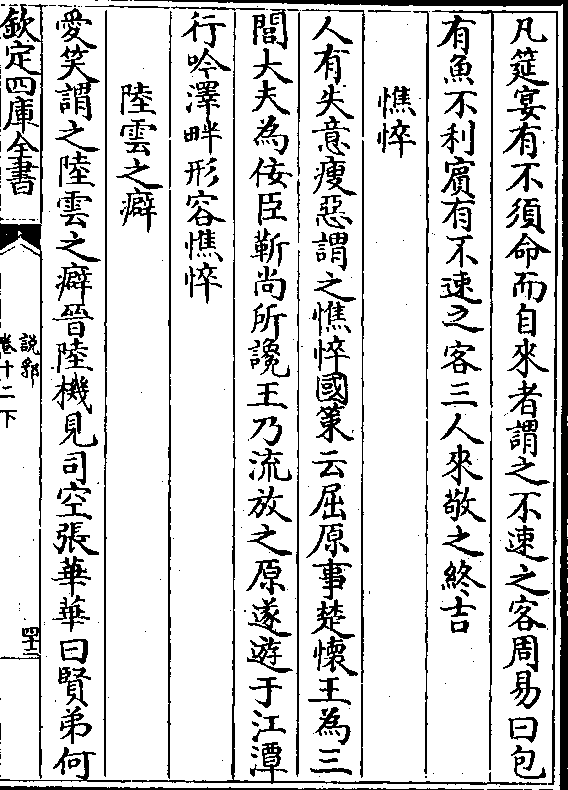 凡筵宴有不須命而自來者謂之不速之客周易曰包
有魚不利賓有不速之客三人來敬之終吉
憔悴
人有失意瘦惡謂之憔悴國策云屈原事楚懷王為三
閭大夫為佞臣靳尚所讒王乃流放之原遂遊于江潭
行吟澤畔形容憔悴
陸雲之癖
愛笑謂之陸雲之癖晉陸機見司空張華華曰賢弟何
欽定四庫全書
說郛
卷十二下
四十三